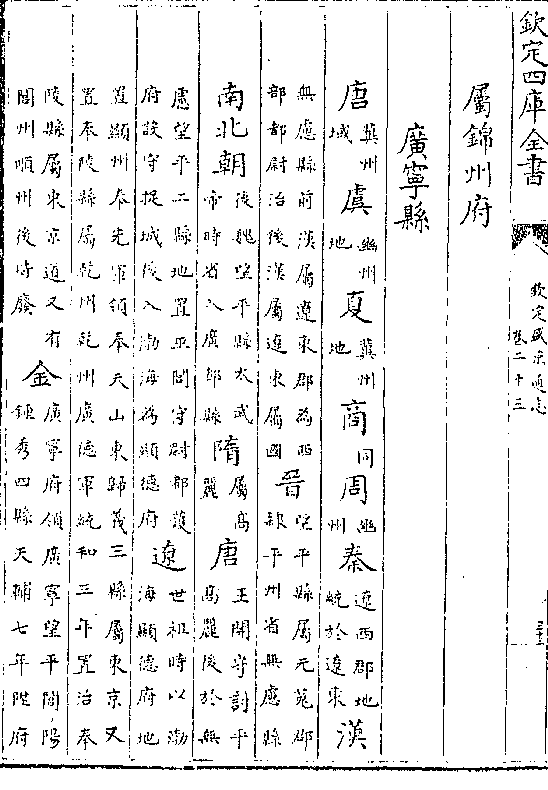 欽定四庫全書
欽定盛京通志
卷二十三
屬錦州府
廣寧縣
唐冀州域虞幽州地夏冀州地商同周幽州秦遼西郡地統於遼東漢
無慮縣前漢屬遼東郡為西部都尉治後漢屬遼東屬國晉望平縣屬元菟郡隸平州省無慮縣
南北朝後魏望平縣太武帝時省入廣都縣隋屬高麗唐王開守討平高麗後於無
慮望平二縣地置巫閭守尉都護府設守捉城後入渤海為顯德府遼世祖時以渤海顯德府地
置顯州奉先軍領奉天山東歸義三縣屬東京又置奉陵縣屬乾州乾州廣德軍統和三年置治奉
陵縣屬東京道又有閭州順州後時廢金廣寧府領廣寧望平閭陽鍾秀四縣天輔七年陞府